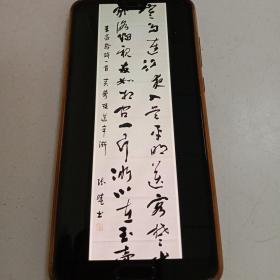 寒雨连江夜入吴平明送客楚山
孤洛阳亲友如相问一片冰心在玉壶
王昌龄诗一首 芙蓉楼送辛渐
书